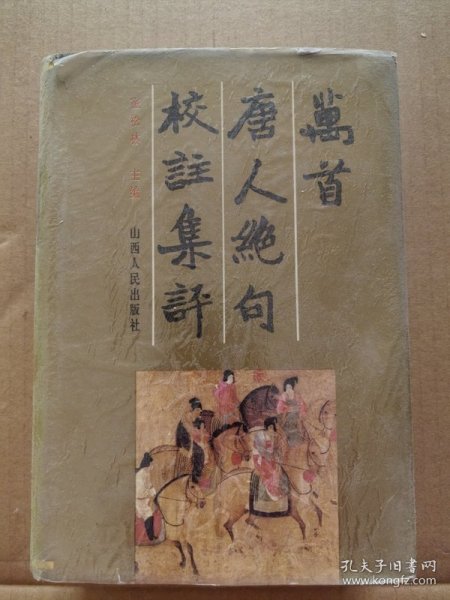 萬首
唐人絶句
校註集評
霍松林 主编
山西人民出版社
孔夫子旧书网
www.kongfz.com